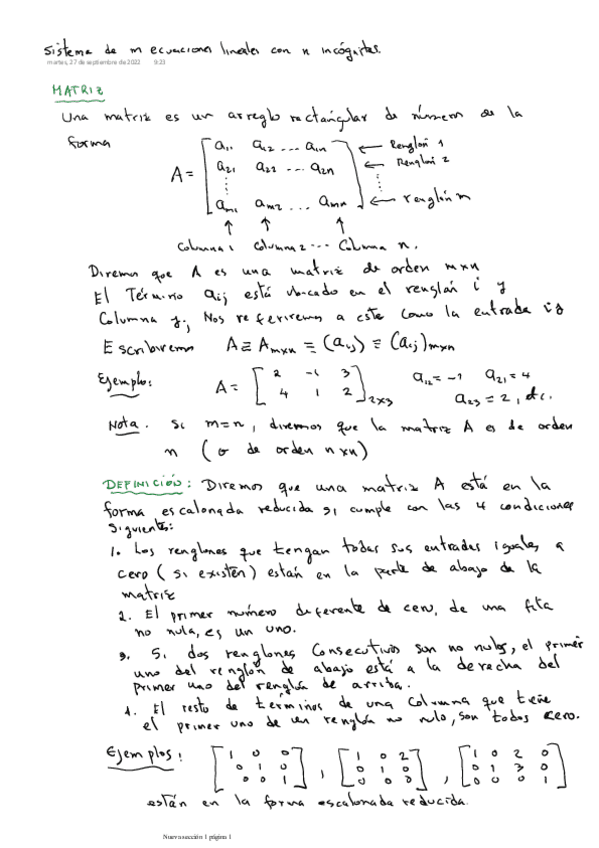 Sistema de m ecuaciones lineales con n incógnitas.
martes, 27 de septiembre de 2022 9:23
MATRIZ
Una matriz es un arreglo rectangular de números de la
forma
A = [ a₁₁ a₁₂ ... a₁ₙ ← Renglón 1
a₂₁ a₂₂ ... a₂ₙ ← Renglón 2
⋮ ⋮
aₘ₁ aₘ₂ ... aₘₙ ] ← renglón m
↑ ↑ ↑
Columna 1 Columna 2 ... Columna n.
Diremos que A es una matriz de orden m×n
El Término aᵢⱼ está ubicado en el renglón i y
Columna j. Nos referiremos a este como la entrada ij
Escribiremos A ≡ Aₘₓₙ ≡ (aᵢⱼ) ≡ (aᵢⱼ)ₘₓₙ
Ejemplo: A = [ 2 -1 3 a₁₂ = -1 a₂₁ = 4
4 1 2 ]₂ₓ₃ a₂₃ = 2, etc.
Nota. Si m=n, diremos que la matriz A es de orden
n (o de orden n×n)
DEFINICIÓN: Diremos que una matriz A está en la
forma escalonada reducida si cumple con las 4 condiciones
siguientes:
1. Los renglones que tengan todas sus entradas iguales a
cero (si existen) están en la parte de abajo de la
matriz
2. El primer número diferente de cero, de una fila
no nula, es un uno.
3. Si dos renglones Consecutivos son no nulos, el primer
uno del renglón de abajo está a la derecha del
primer uno del renglón de arriba.
4. El resto de términos de una columna que tiene
el primer uno de un renglón no nulo, son todos cero.
Ejemplos: [ 1 0 0 [ 1 0 2 [ 1 0 2 0
0 1 0 , 0 1 0 , 0 1 3 0
0 0 1 ] 0 0 0 ] 0 0 0 1 ]
están en la forma escalonada reducida.
Nueva sección 1 página 1